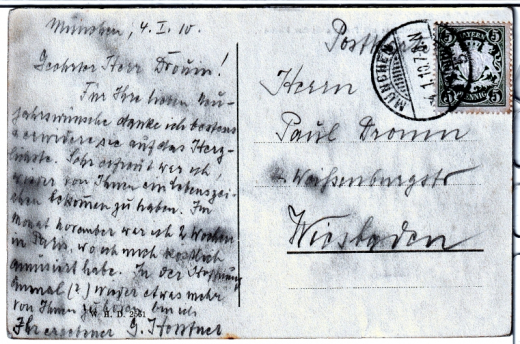 München, 4. I. 10.
Geehrter Herr Drouin!
Für Ihre lieben Neu-
jahrswünsche danke ich bestens
u. erwidere sie auf das Herz-
lichste. Sehr erfreut war ich,
wieder von Ihnen ein Lebenszei-
chen bekommen zu haben. Im
Monat November war ich 2 Wochen
in Paris, wo ich mich köstlich
amüsiert habe. In der Hoffnung
einmal (?) wieder etwas mehr
von Ihnen zu hören bin ich
Ihr ergebener G. Horstner
W. H. D. 2561
Postkarte
MÜNCHEN
BAYERN
5 5
5 5
Herrn
Paul Drouin
Weißenburgstr
Wiesbaden